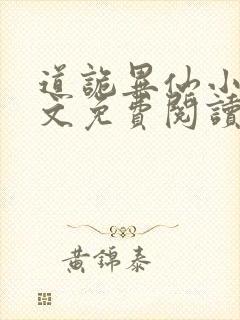 道詭異仙小
文免費閱讀
黃錦泰